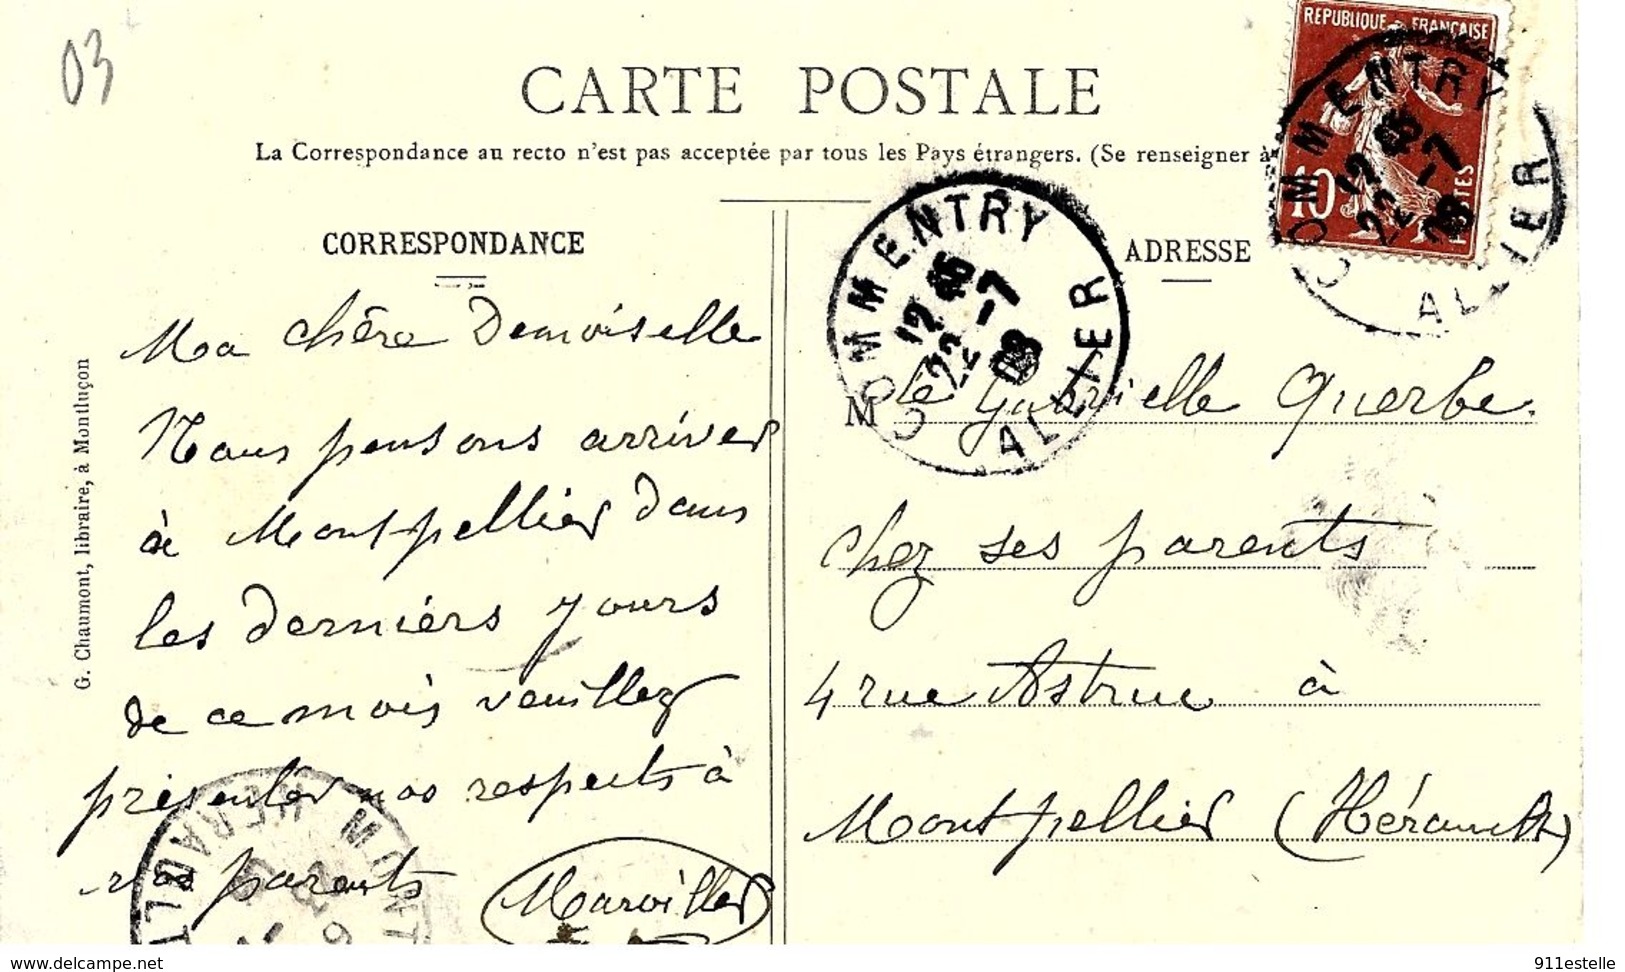 03
CARTE POSTALE
La Correspondance au recto n'est pas acceptée par tous les Pays étrangers. (Se renseigner à
REPUBLIQUE FRANÇAISE
10
POSTES
COMMENTRY
12 45
22 -7
08
ALLIER
COMMENTRY
12 45
22 -7
08
ALLIER
CORRESPONDANCE
Ma chère Demoiselle
Nous pensons arriver
à Montpellier dans
les derniérs jours
de ce mois veuillez
présenter nos respects à
vos parents
Marviller
ADRESSE
Mlle Gabrielle Querbe.
chez ses parents
4 rue Astruc à
Montpellier (Hérault)
G. Chaumont, libraire, à Montluçon
MONT
HERAULT
Delcampe.net
911estelle